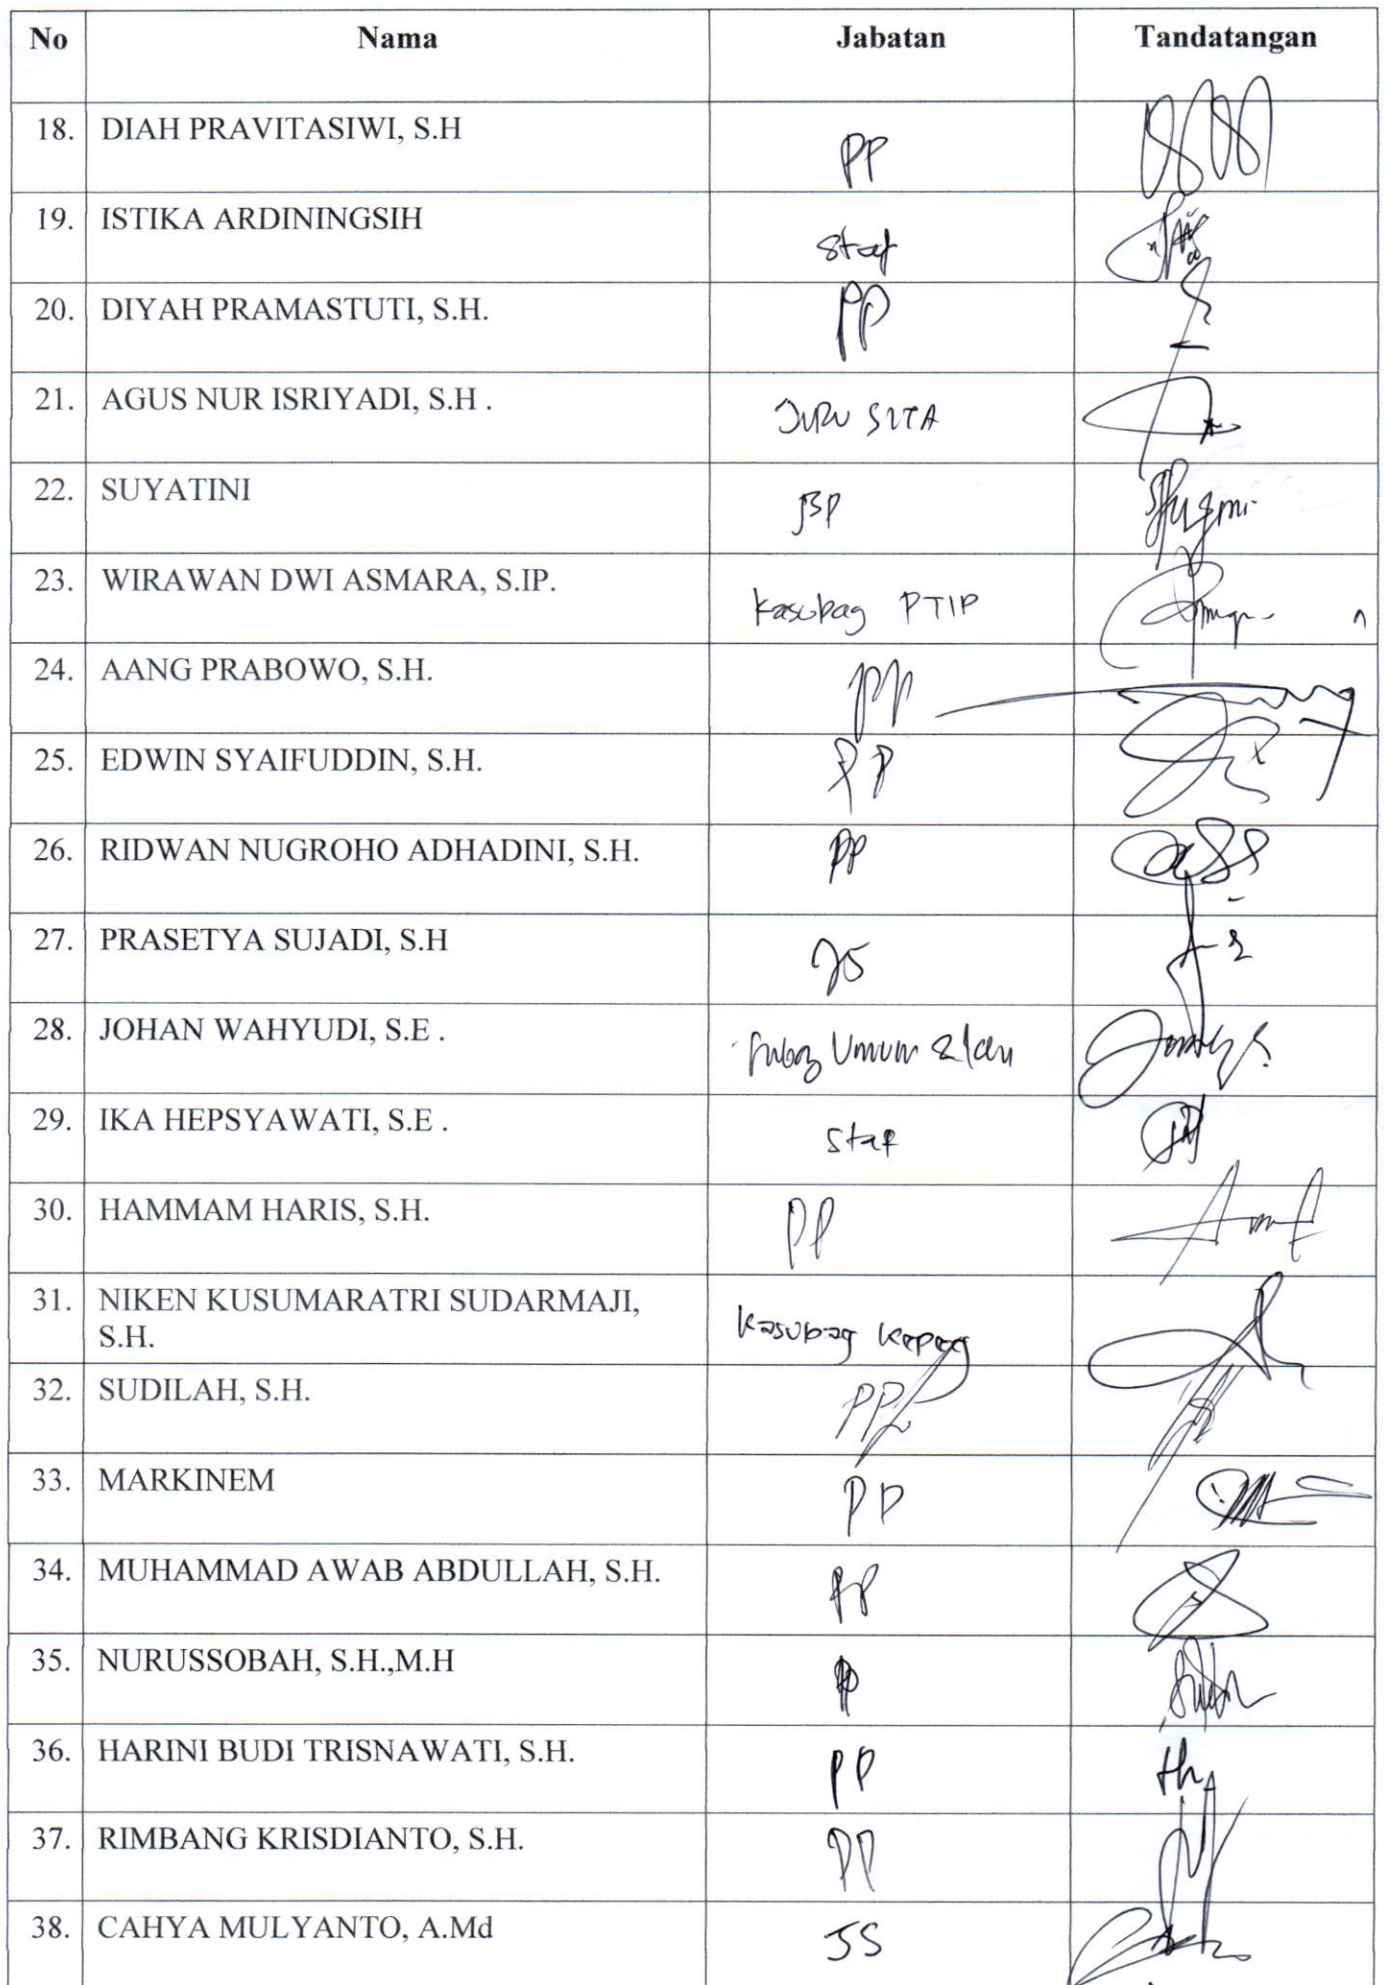 No Nama Jabatan Tandatangan
18. DIAH PRAVITASIWI, S.H PP
19. ISTIKA ARDININGSIH Staf
20. DIYAH PRAMASTUTI, S.H. PP
21. AGUS NUR ISRIYADI, S.H . JURU SITA
22. SUYATINI JSP
23. WIRAWAN DWI ASMARA, S.IP. Kasubag PTIP
24. AANG PRABOWO, S.H. PP
25. EDWIN SYAIFUDDIN, S.H. PP
26. RIDWAN NUGROHO ADHADINI, S.H. PP
27. PRASETYA SUJADI, S.H JS
28. JOHAN WAHYUDI, S.E . Umum &
29. IKA HEPSYAWATI, S.E . Staf
30. HAMMAM HARIS, S.H. PP
31. NIKEN KUSUMARATRI SUDARMAJI, Kasubag Kepeg
S.H.
32. SUDILAH, S.H. PP
33. MARKINEM PP
34. MUHAMMAD AWAB ABDULLAH, S.H. PP
35. NURUSSOBAH, S.H.,M.H PP
36. HARINI BUDI TRISNAWATI, S.H. PP
37. RIMBANG KRISDIANTO, S.H. PP
38. CAHYA MULYANTO, A.Md JS